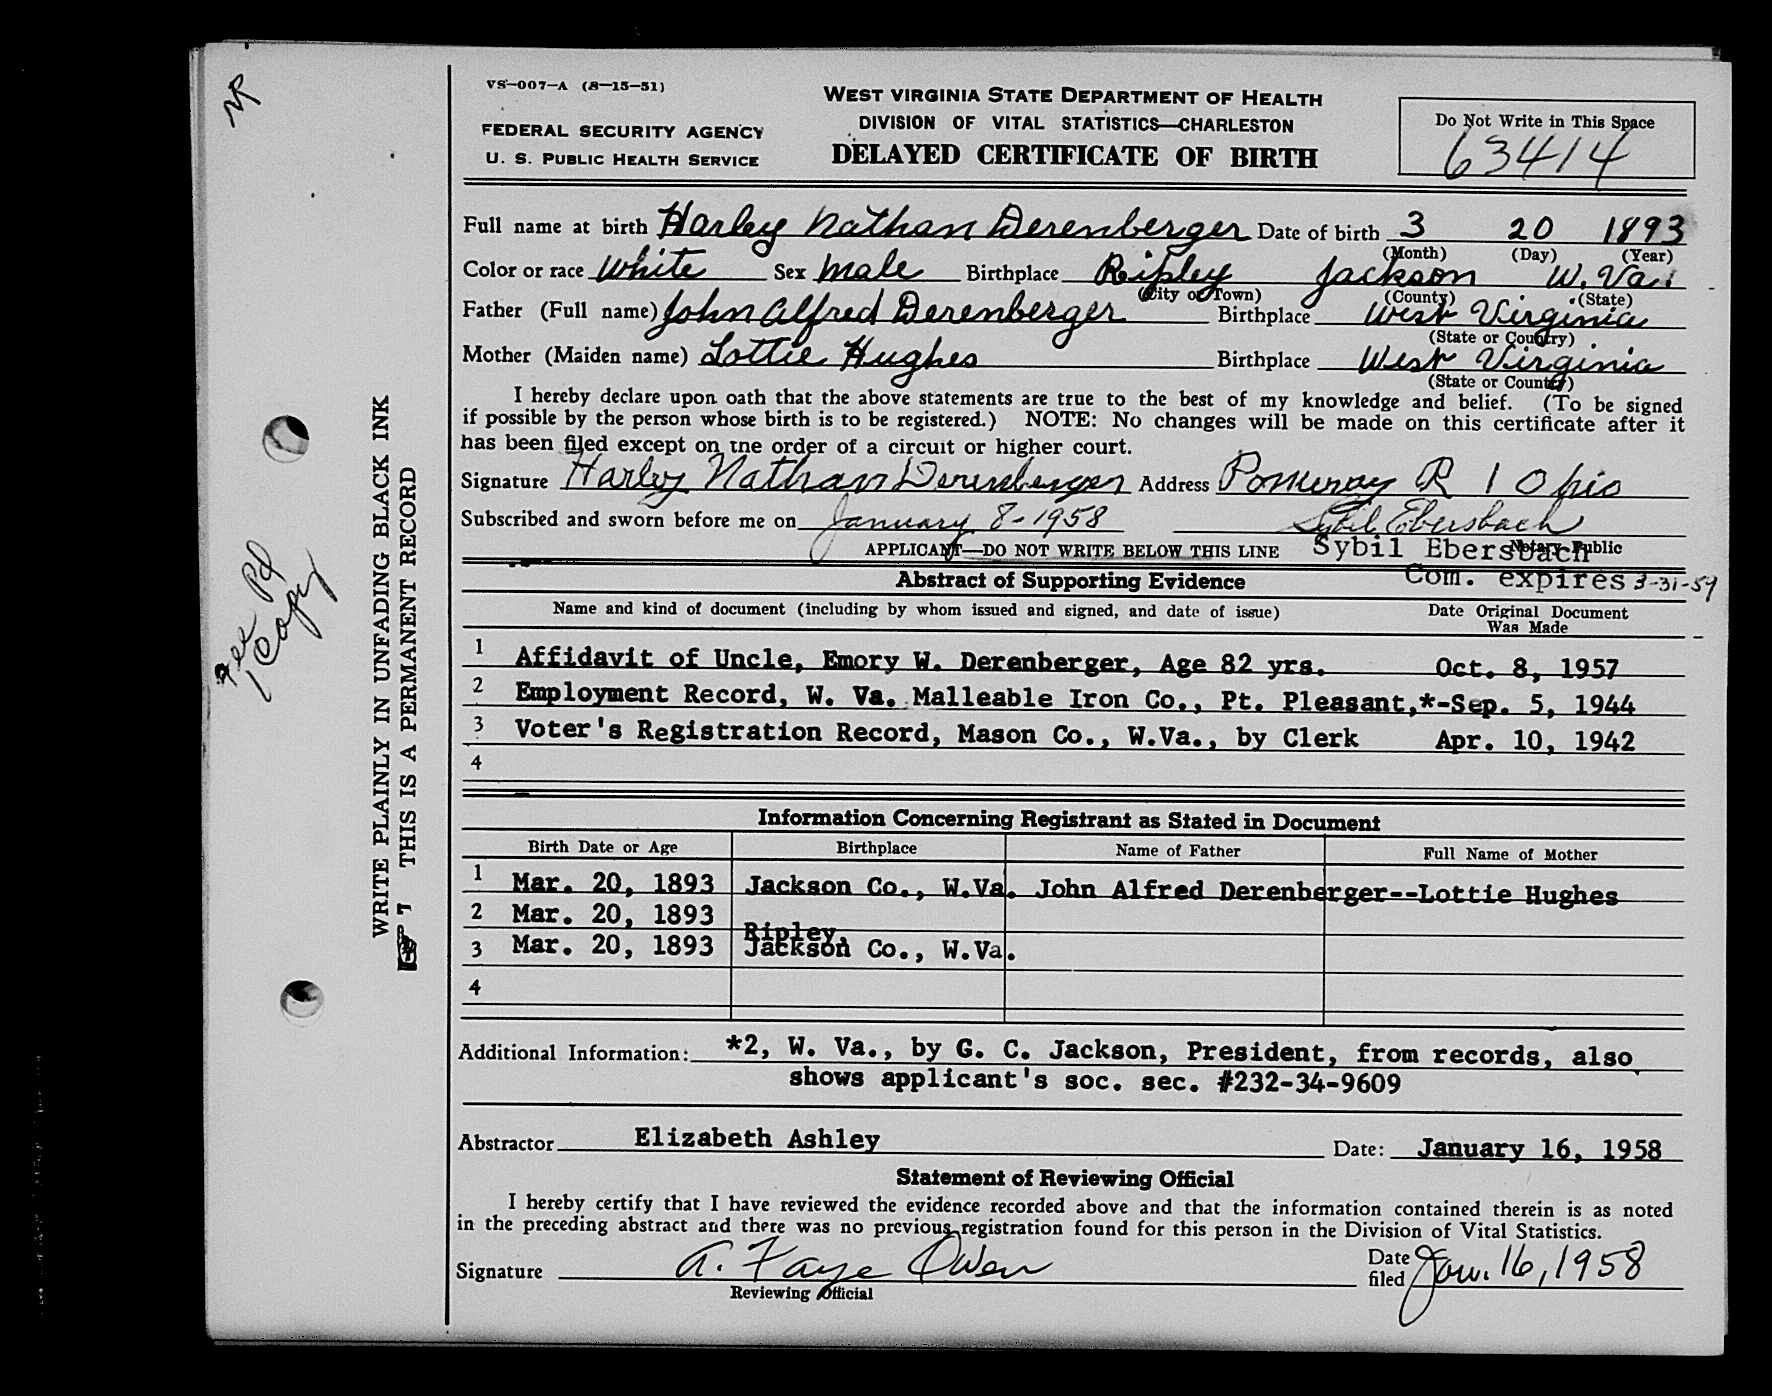 VS-007-A (8-15-51)
FEDERAL SECURITY AGENCY
U. S. PUBLIC HEALTH SERVICE
WEST VIRGINIA STATE DEPARTMENT OF HEALTH
DIVISION OF VITAL STATISTICS—CHARLESTON
DELAYED CERTIFICATE OF BIRTH
Do Not Write in This Space
63414
Full name at birth Harley Nathan Derenberger Date of birth 3 20 1893
(Month) (Day) (Year)
Color or race White Sex Male Birthplace Ripley Jackson W. Va.
(City or Town) (County) (State)
Father (Full name) John Alfred Derenberger Birthplace West Virginia
(State or Country)
Mother (Maiden name) Lottie Hughes Birthplace West Virginia
(State or Country)
I hereby declare upon oath that the above statements are true to the best of my knowledge and belief. (To be signed
if possible by the person whose birth is to be registered.) NOTE: No changes will be made on this certificate after it
has been filed except on the order of a circuit or higher court.
Signature Harley Nathan Derenberger Address Pomeroy R 1 Ohio
Subscribed and sworn before me on January 8-1958 Sybil Ebersbach
APPLICANT—DO NOT WRITE BELOW THIS LINE Sybil Ebersbach Notary Public
Com. expires 3-31-59
Abstract of Supporting Evidence
Name and kind of document (including by whom issued and signed, and date of issue) Date Original Document
Was Made
1 Affidavit of Uncle, Emory W. Derenberger, Age 82 yrs. Oct. 8, 1957
2 Employment Record, W. Va. Malleable Iron Co., Pt. Pleasant,*-Sep. 5, 1944
3 Voter's Registration Record, Mason Co., W.Va., by Clerk Apr. 10, 1942
4
Information Concerning Registrant as Stated in Document
Birth Date or Age Birthplace Name of Father Full Name of Mother
1 Mar. 20, 1893 Jackson Co., W.Va. John Alfred Derenberger--Lottie Hughes
2 Mar. 20, 1893
Ripley,
3 Mar. 20, 1893 Jackson Co., W.Va.
4
Additional Information: *2, W. Va., by G. C. Jackson, President, from records, also
shows applicant's soc. sec. #232-34-9609
Abstractor Elizabeth Ashley Date: January 16, 1958
Statement of Reviewing Official
I hereby certify that I have reviewed the evidence recorded above and that the information contained therein is as noted
in the preceding abstract and there was no previous registration found for this person in the Division of Vital Statistics.
Signature A. Faye Owen Date filed Jan. 16, 1958
Reviewing Official
WRITE PLAINLY IN UNFADING BLACK INK
THIS IS A PERMANENT RECORD
Fee Pd
1 Copy